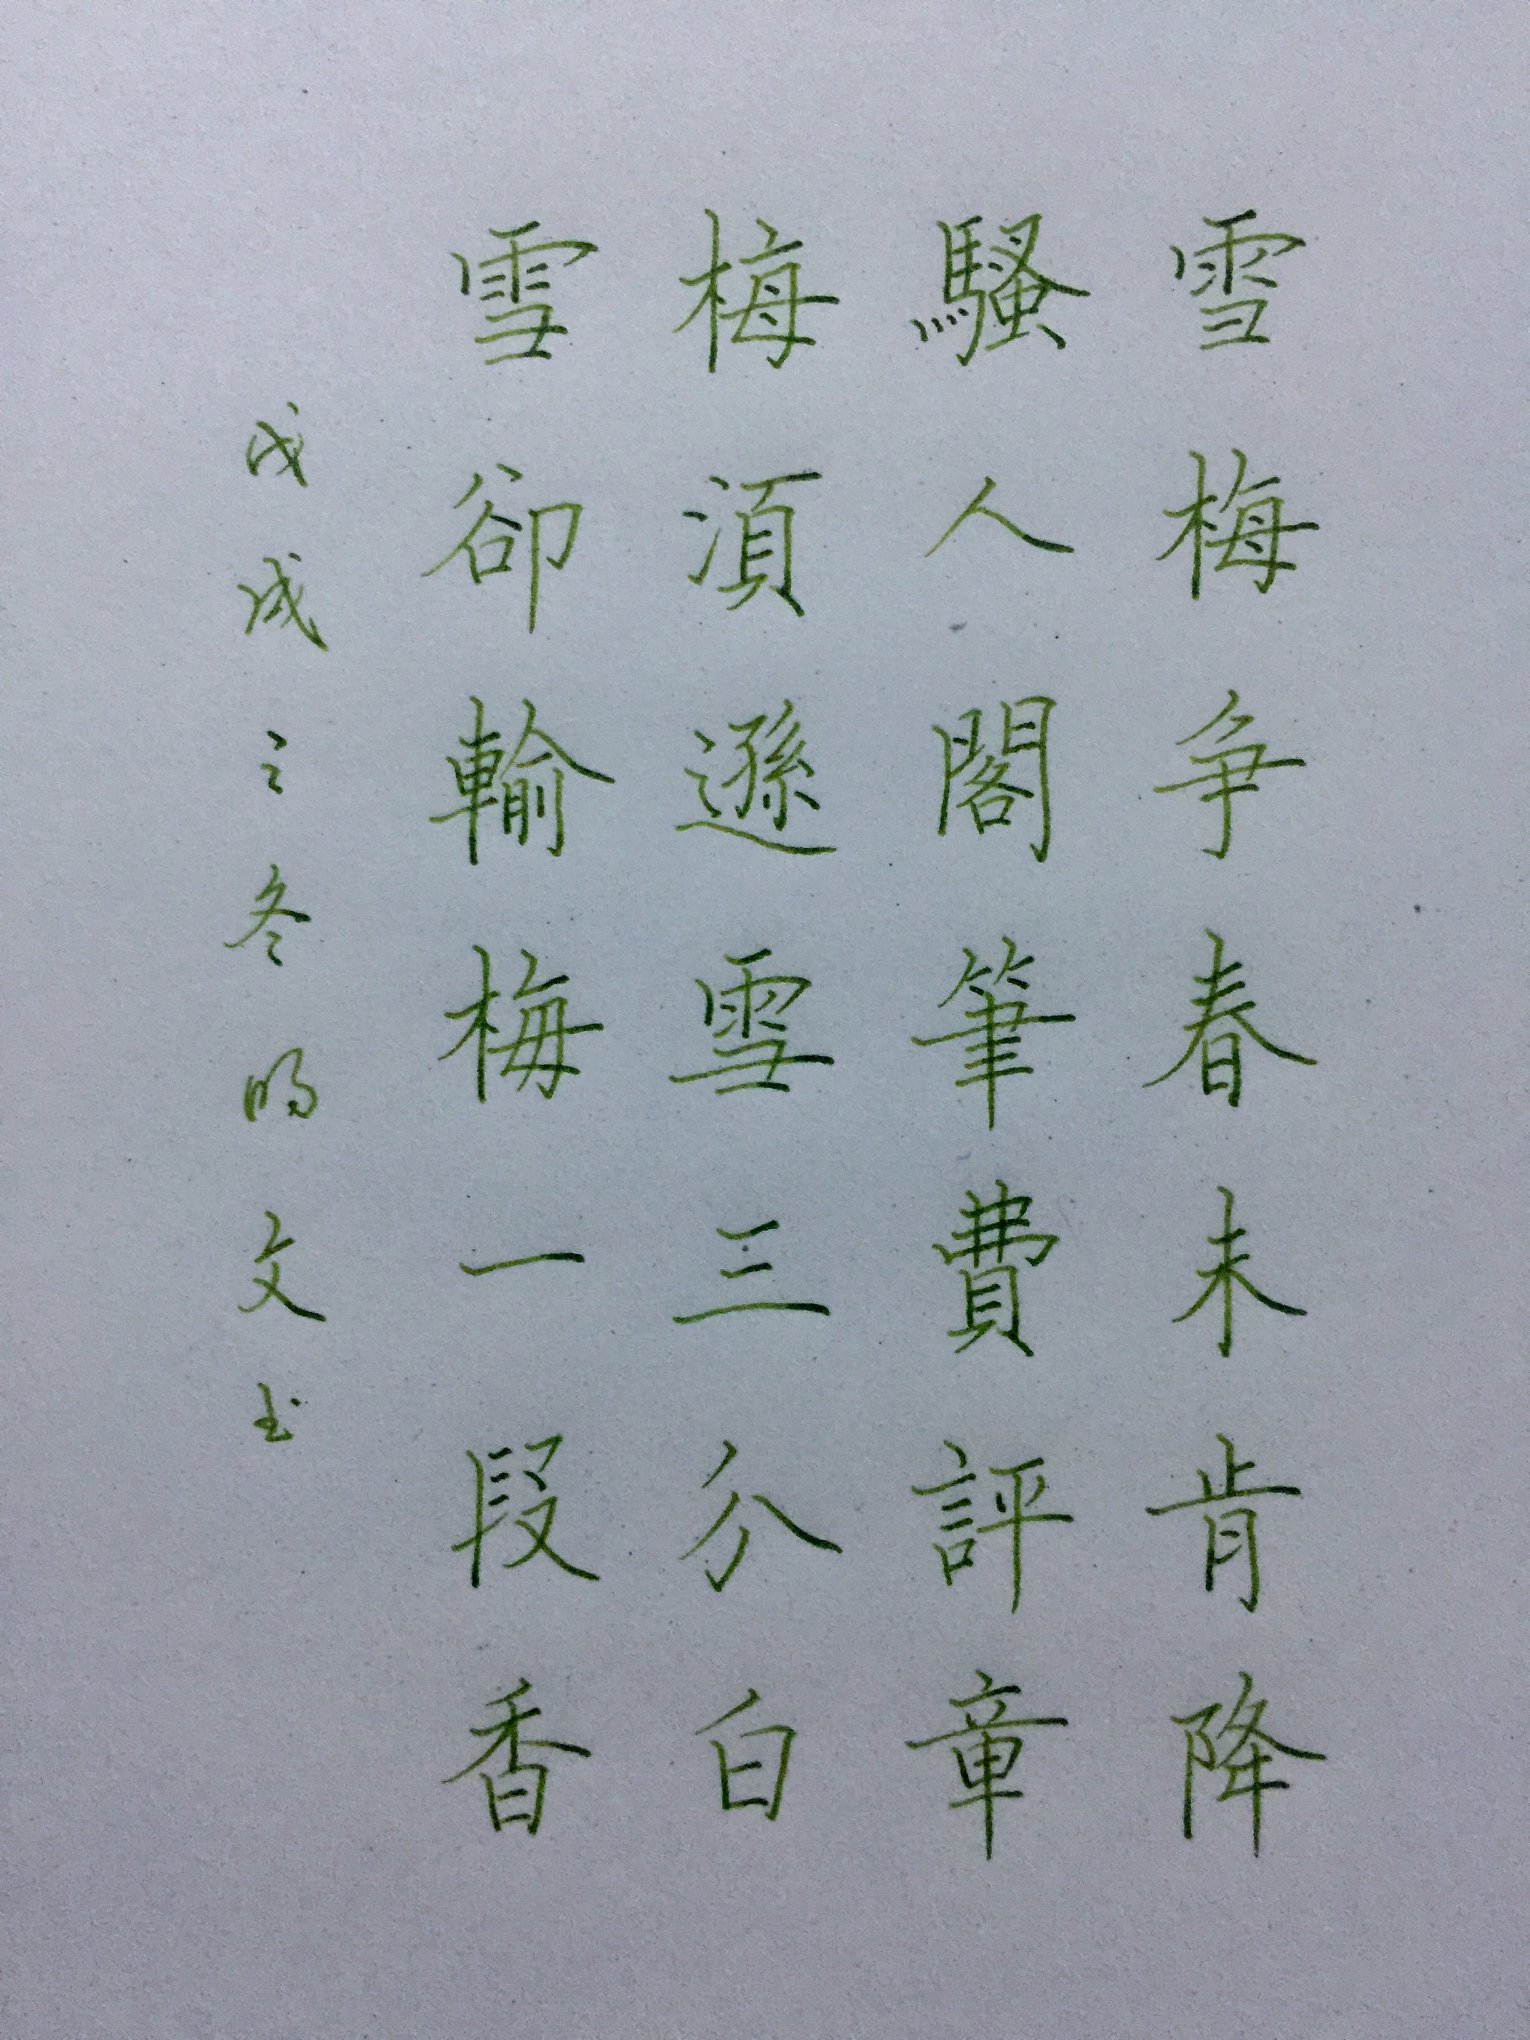 雪梅争春未肯降
騷人閣筆費評章
梅湏遜雪三分白
雪卻輸梅一段香
戊戌之冬明文书